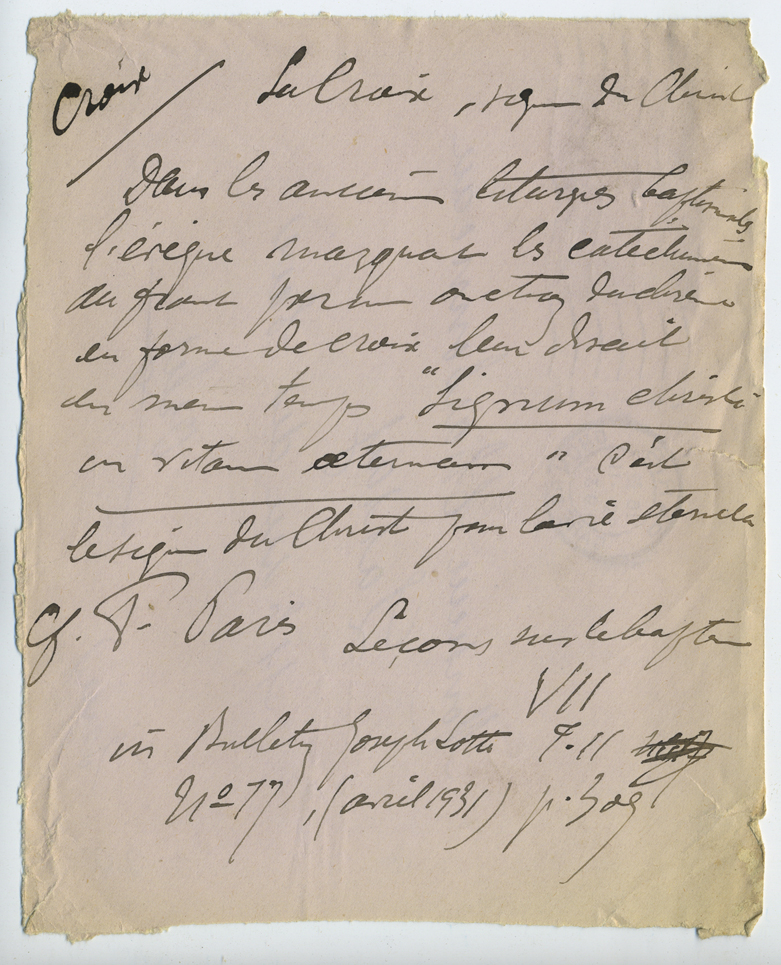 Croix / La Croix, signe du Christ
Dans les anciennes liturgies baptismales
l'évêque marquait les catéchumènes
au front par une onction du chrême
en forme de croix leur disait
en même temps "Signum Christi
in vitam aeternam" C'est
le signe du Christ pour la vie éternelle
Cf. P. Paris Leçons sur le baptême
VII
in Bulletin Joseph Lotte T. II
No 77, (avril 1931) p. 309